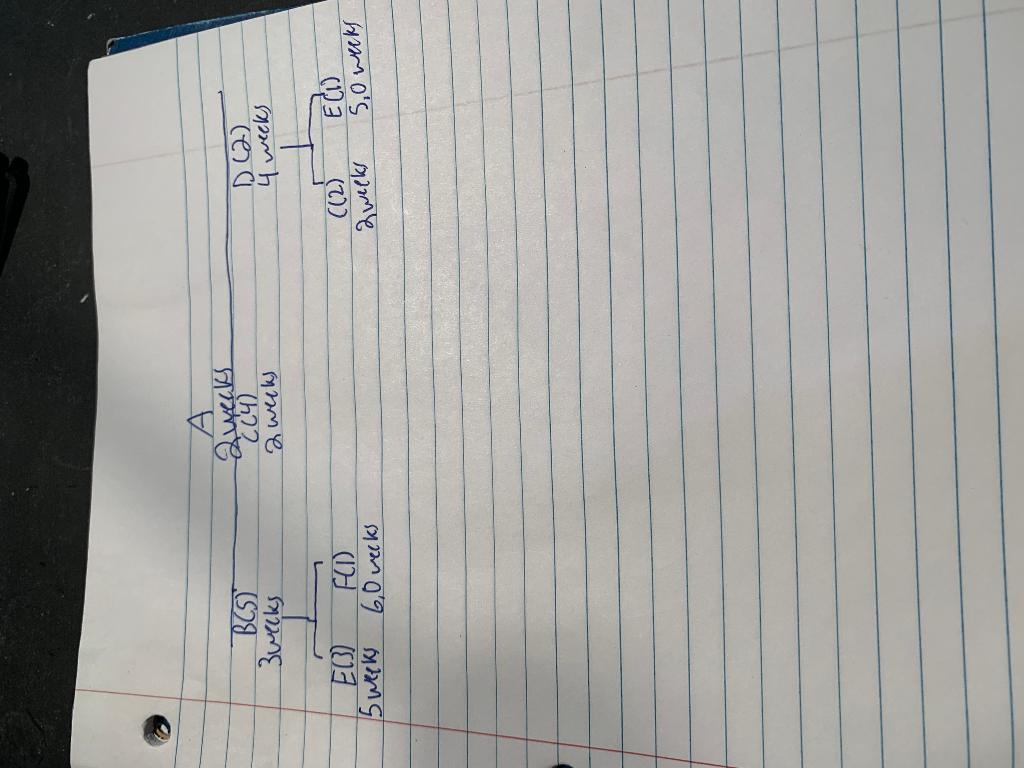 A
2 weeks
B(5) C(4) D(2)
3 weeks 2 weeks 4 weeks
E(1) F(1) C(2) E(1)
5 weeks 6,0 weeks 2 weeks 5,0 weeks